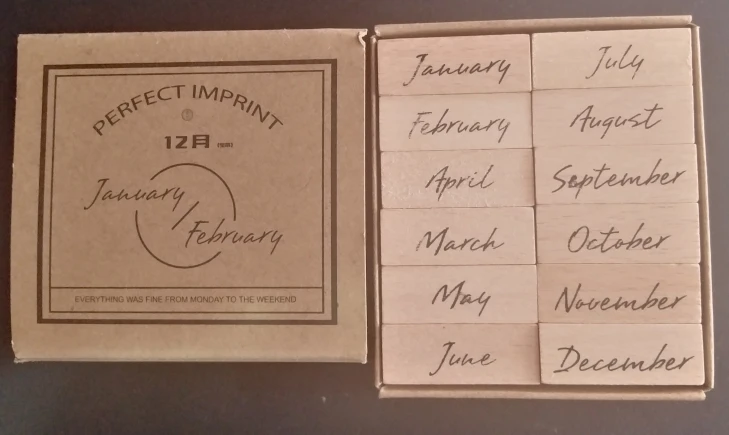 PERFECT IMPRINT
12月
January
February
EVERYTHING WAS FINE FROM MONDAY TO THE WEEKEND
January
February
April
March
May
June
July
August
September
October
November
December